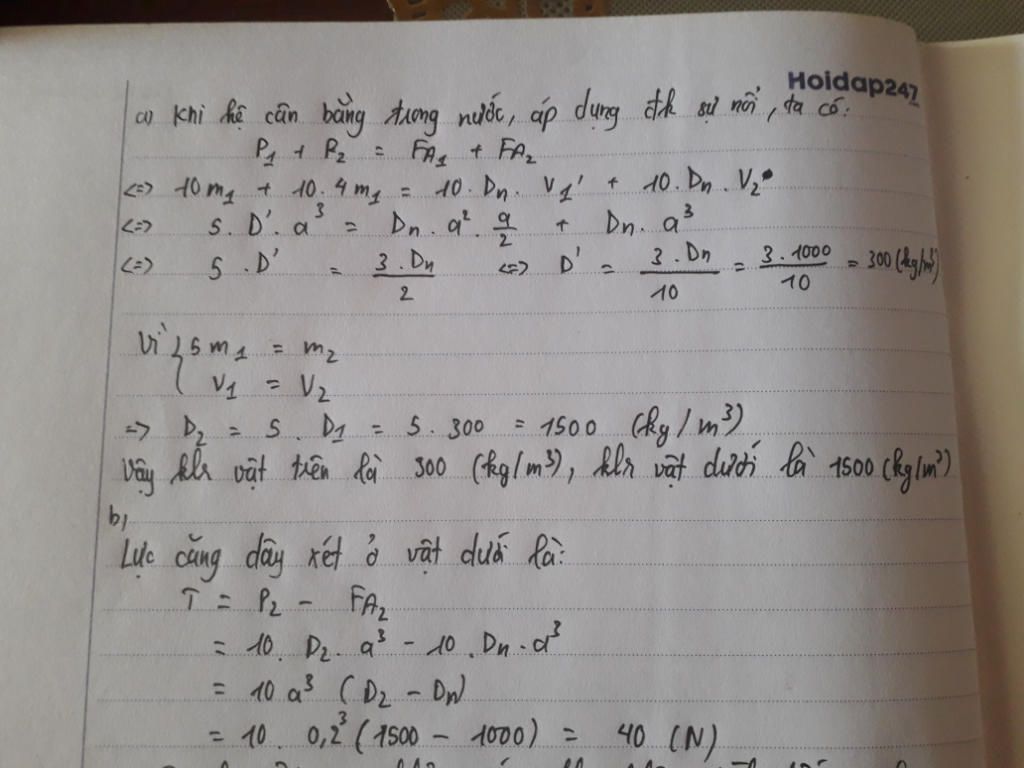 Hoidap247
a) Khi hệ cân bằng trong nước, áp dụng đk sự nổi, ta có:
P1 + P2 = FA1 + FA2
<=> 10m1 + 10.4m1 = 10.Dn.V1' + 10.Dn.V2
<=> 5.D'.a³ = Dn.a².a/2 + Dn.a³
<=> 5.D' = 3.Dn/2 <=> D' = 3.Dn/10 = 3.1000/10 = 300 (kg/m³)
Vì { 5m1 = m2
V1 = V2
=> D2 = 5.D1 = 5.300 = 1500 (kg/m³)
Vậy klr vật trên là 300 (kg/m³), klr vật dưới là 1500 (kg/m³)
b,
Lực căng dây xét ở vật dưới là:
T = P2 - FA2
= 10.D2.a³ - 10.Dn.a³
= 10a³ (D2 - Dn)
= 10. 0,2³ (1500 - 1000) = 40 (N)